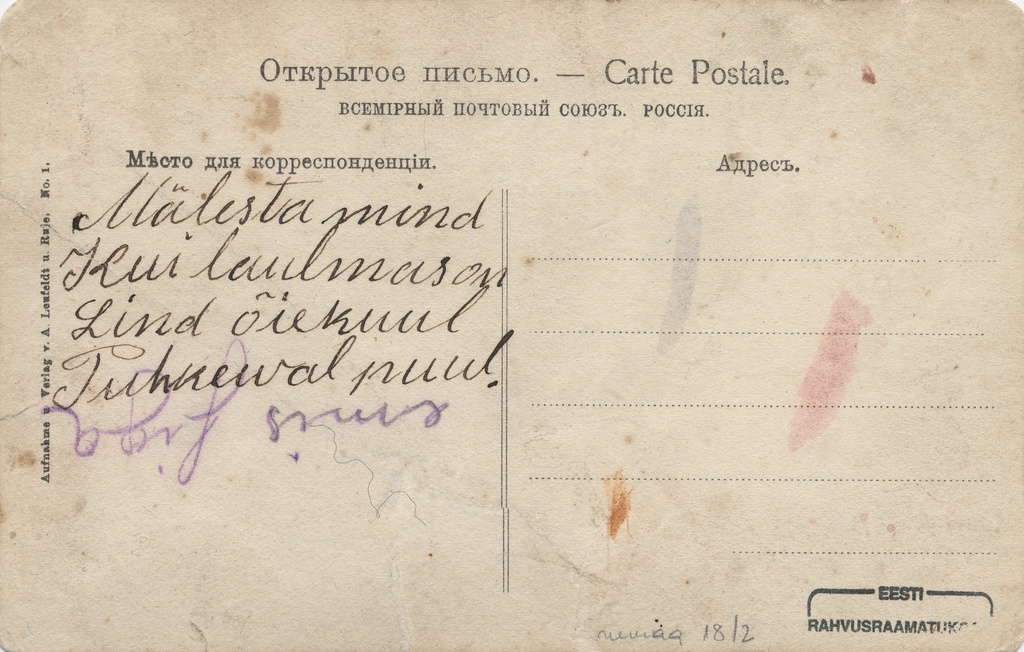 Открытое письмо. — Carte Postale.
ВСЕМІРНЫЙ ПОЧТОВЫЙ СОЮЗЪ. РОССІЯ.
Мѣсто для корреспонденціи.
Адресъ.
Aufnahme u Verlag v. A. Leufeldt u. Ruje. No. 1.
Mälesta mind
Kui laulmas on
Lind õiekuul
Puhkewal puul.
18/2
EESTI